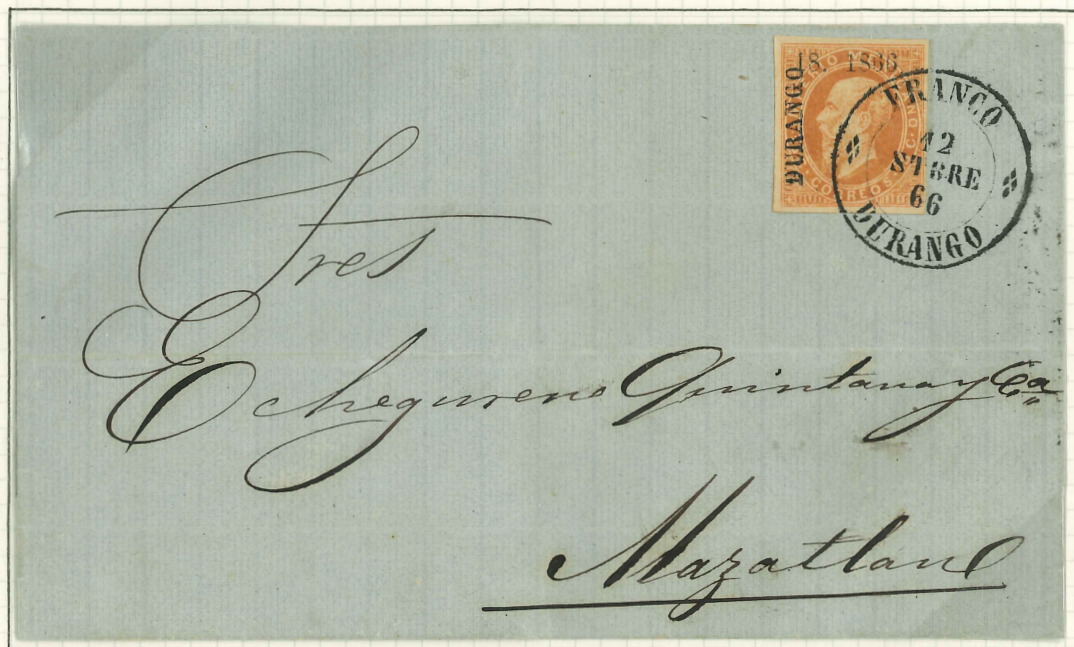 18. 1866
DURANGO
IMPERIO MEXICANO
CORREOS
FRANCO
12
STBRE
66
DURANGO
Sres
Echeguren Quintana y Ca
Mazatlan